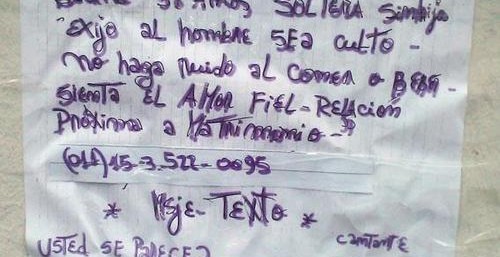 58 Años SOLTERA Sin hijo
"exijo al hombre SEA culto -
no haga ruido al comer o BEBE -
sienta El AMOR Fiel - Relación
Próxima a Matrimonio - "
(011) 15-3.522-0095
* Msje - TEXTO *
cantante
USTED SE PARECE?